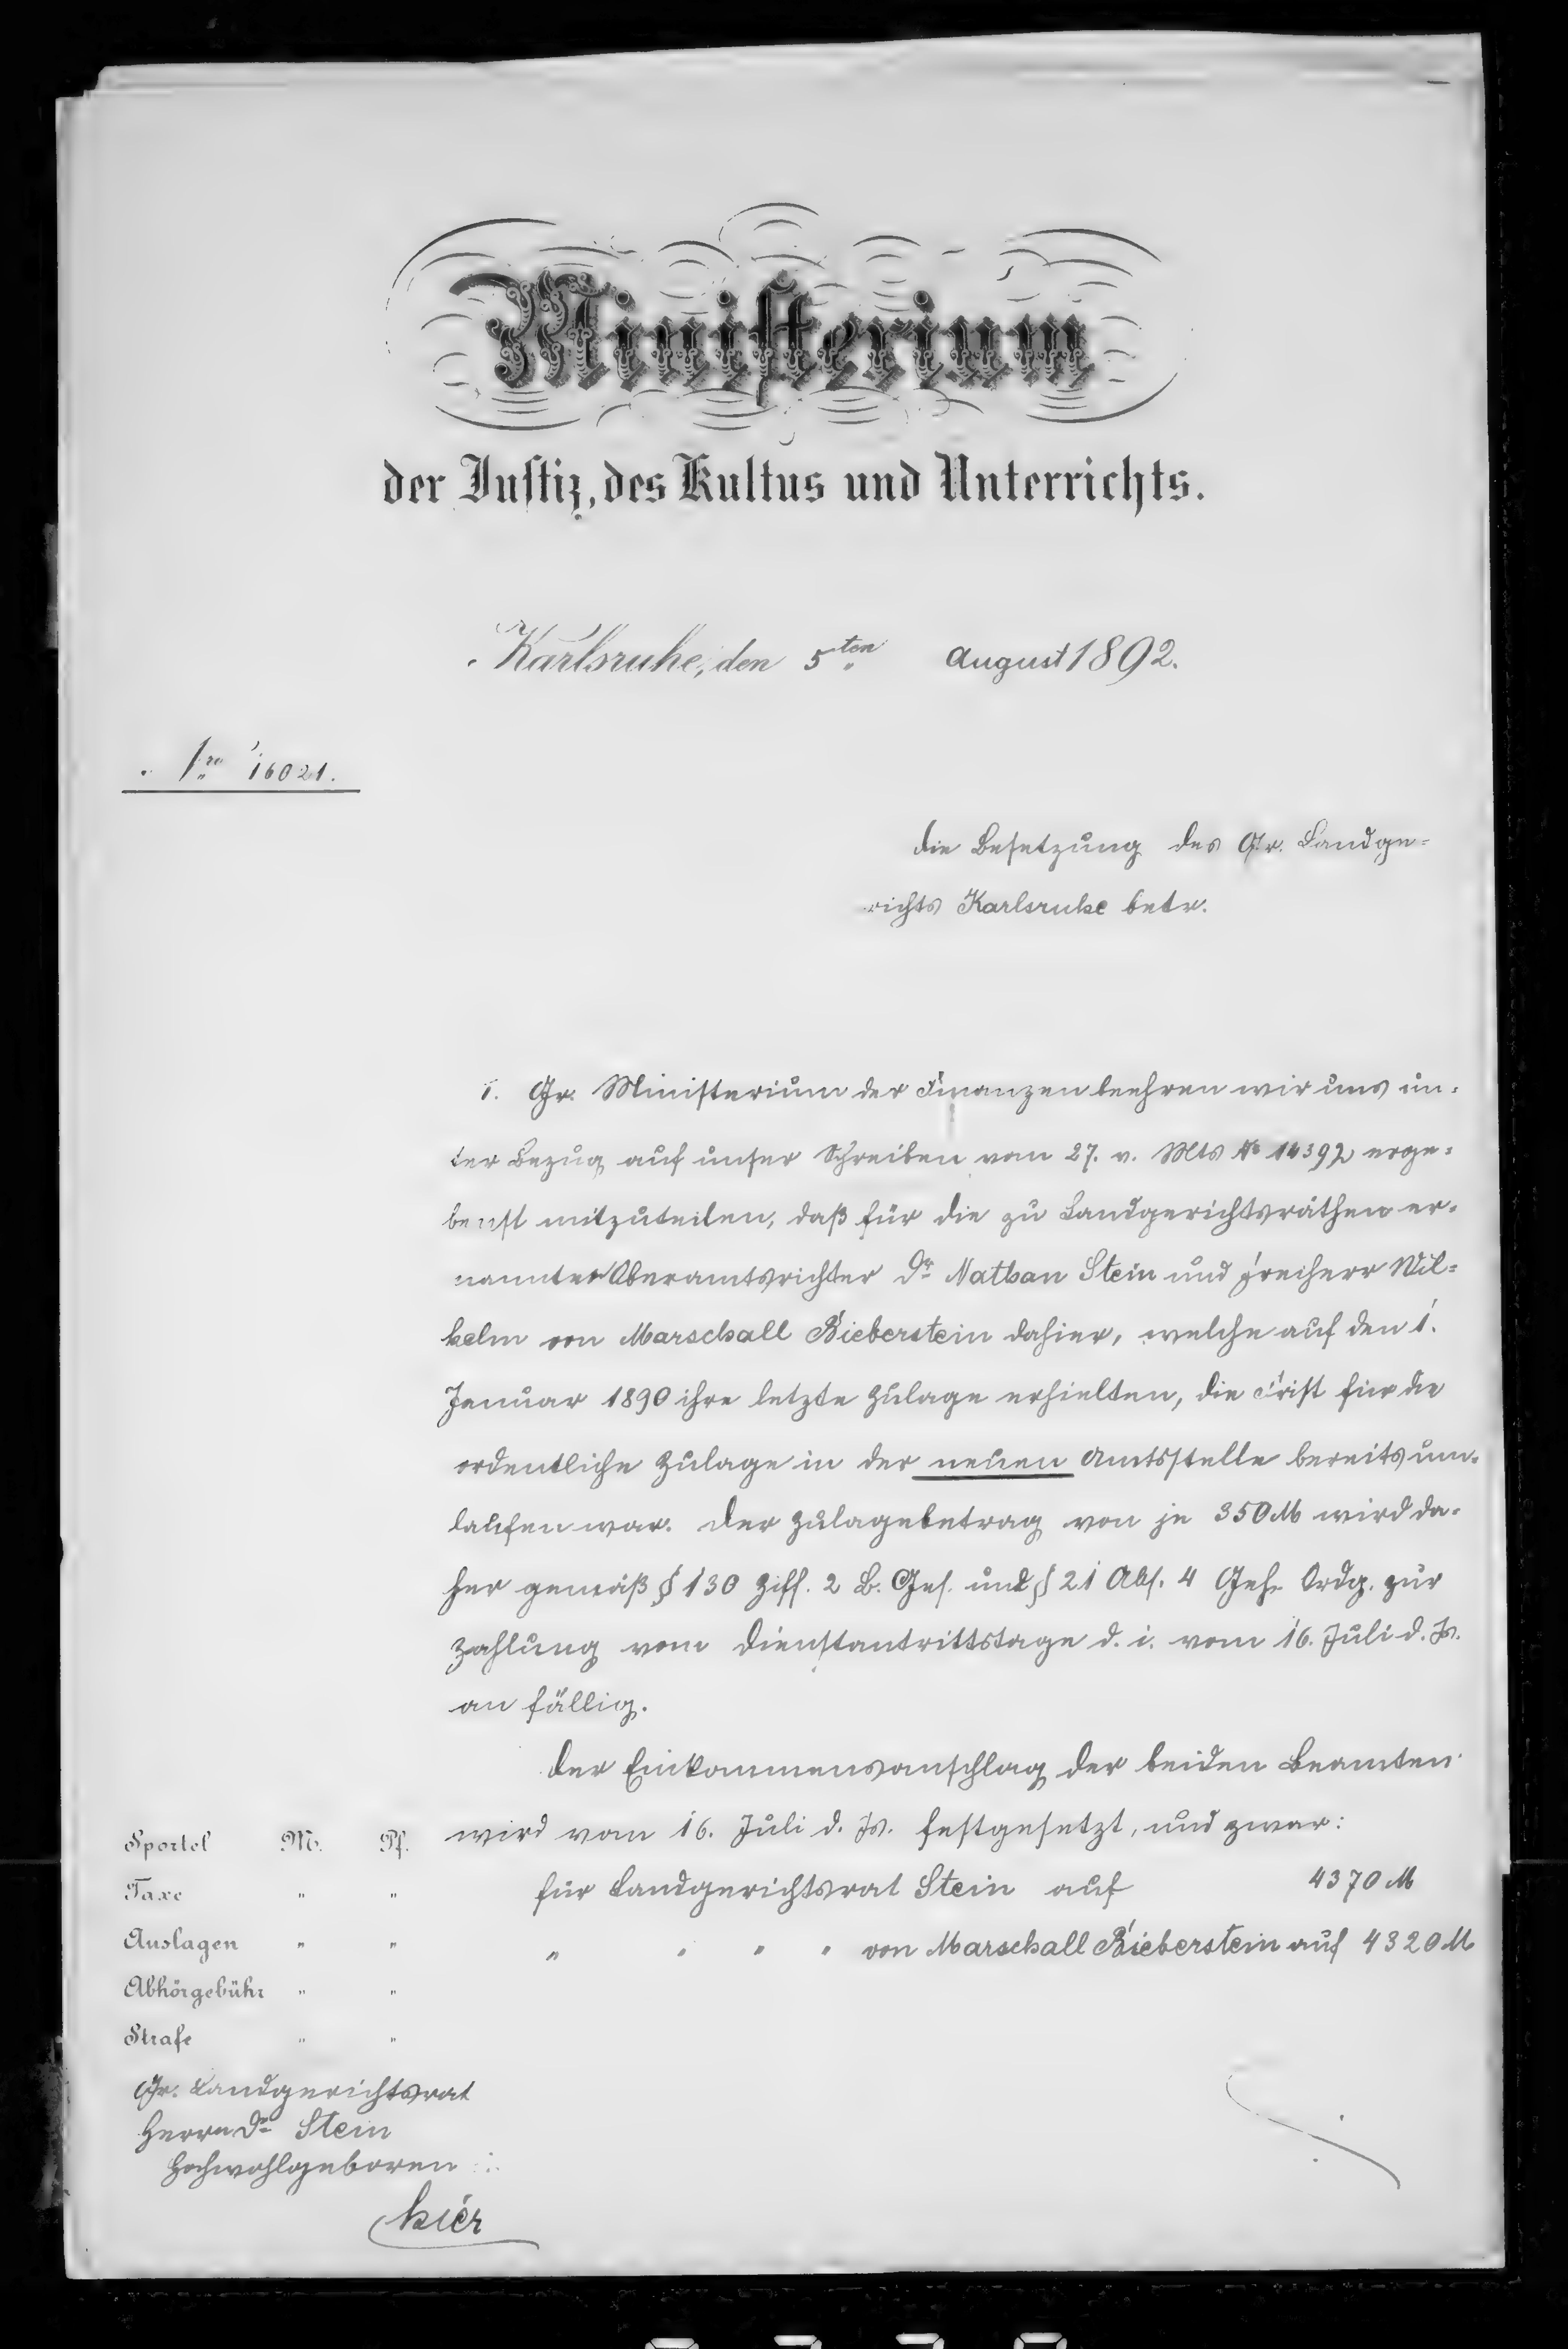 Ministerium
der Justiz, des Kultus und Unterrichts.
Karlsruhe, den 5ten August 1892.
Nro 16021.
Die Besetzung des Gr. Landge=
richts Karlsruhe betr.
1. Gr. Ministerium der Finanzen beehren wir uns un=
ter Bezug auf unser Schreiben vom 27. v. Mts No 14392 erge=
benst mitzuteilen, daß für die zu Landgerichtsräthen er=
nannten Oberamtsrichter Dr Nathan Stein und Freiherr Wil=
helm von Marschall Bieberstein dahier, welche auf den 1.
Januar 1890 ihre letzte Zulage erhielten, die Frist für die
ordentliche Zulage in der neuen Amtsstelle bereits um=
laufen war. Der Zulagebetrag von je 350 M wird da=
her gemäß § 130 Ziff. 2 B. Ges. und § 21 Abs. 4 Geh. Ordg. zur
Zahlung vom Dienstantrittstage d. i. vom 16. Juli d. Js.
an fällig.
Der Einkommensanschlag der beiden Beamten
wird vom 16. Juli d. Js. festgesetzt, und zwar:
für Landgerichtsrat Stein auf 4370 M
" " " " von Marschall Bieberstein auf 4320 M
Sportel M. Pf.
Taxe " "
Auslagen " "
Abhörgebühr " "
Strafe " "
Gr. Landgerichtsrat
Herrn Dr Stein
Hochwohlgeboren
hier